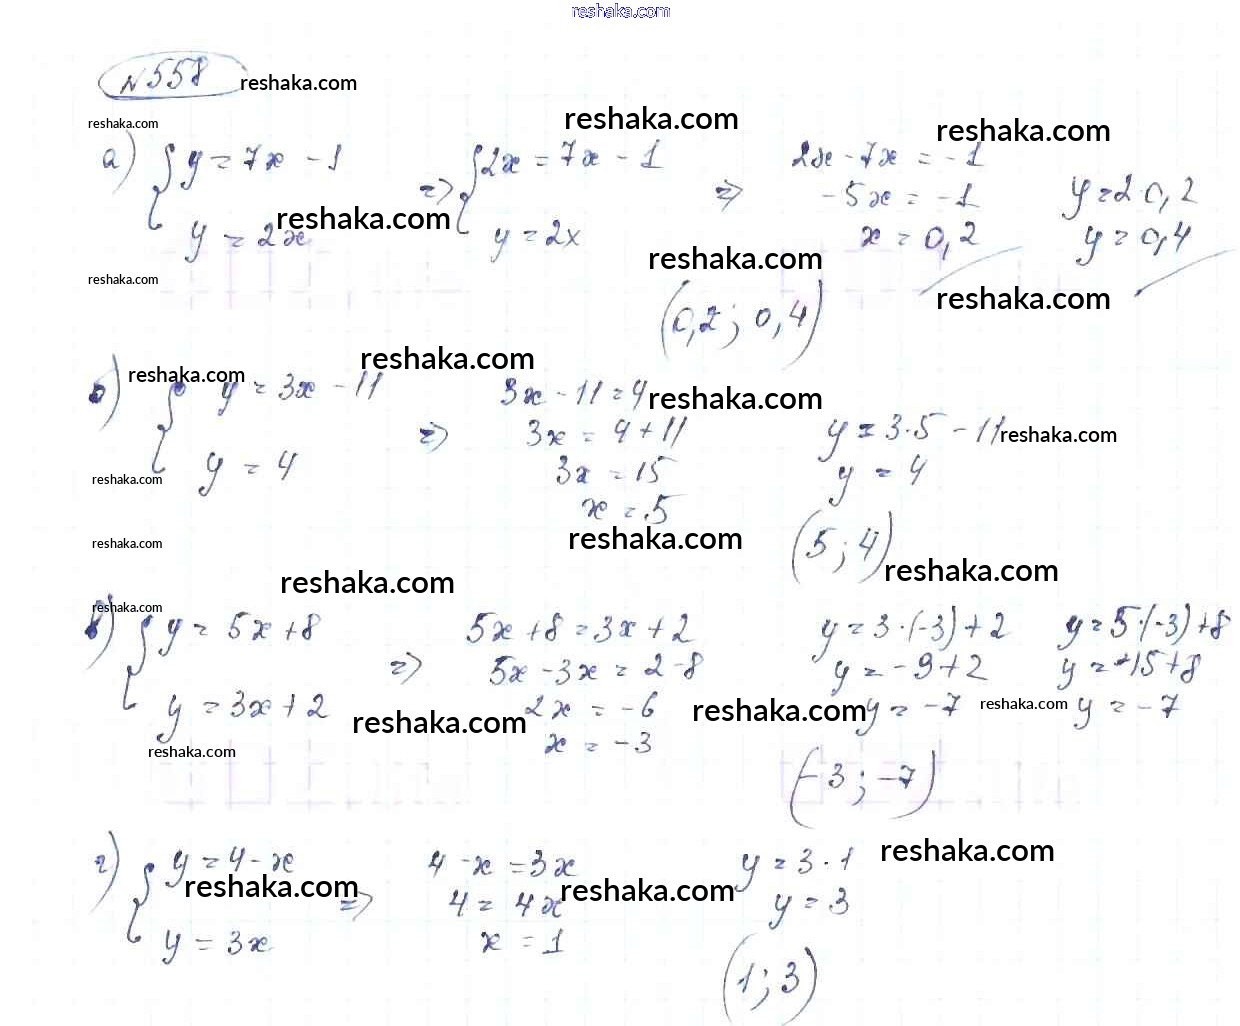 reshaka.com
№558 reshaka.com
reshaka.com
reshaka.com reshaka.com
а) { y = 7x - 1 => { 2x = 7x - 1 => 2x - 7x = -1
y = 2x reshaka.com y = 2x -5x = -1 y = 2·0,2
x = 0,2 y = 0,4
reshaka.com reshaka.com reshaka.com
(0,2; 0,4)
reshaka.com
б) reshaka.com { y = 3x - 11 => 3x - 11 = 4 reshaka.com
3x = 4 + 11 y = 3·5 - 11 reshaka.com
y = 4 3x = 15 y = 4
reshaka.com x = 5
reshaka.com reshaka.com (5; 4)
reshaka.com reshaka.com
reshaka.com
в) { y = 5x + 8 => 5x + 8 = 3x + 2 y = 3·(-3) + 2 y = 5·(-3) + 8
5x - 3x = 2 - 8 y = -9 + 2 y = -15 + 8
y = 3x + 2 reshaka.com 2x = -6 reshaka.com y = -7 reshaka.com y = -7
reshaka.com x = -3
(-3; -7)
г) { y = 4 - x => 4 - x = 3x y = 3·1 reshaka.com
reshaka.com 4 = 4x reshaka.com y = 3
y = 3x x = 1
(1; 3)